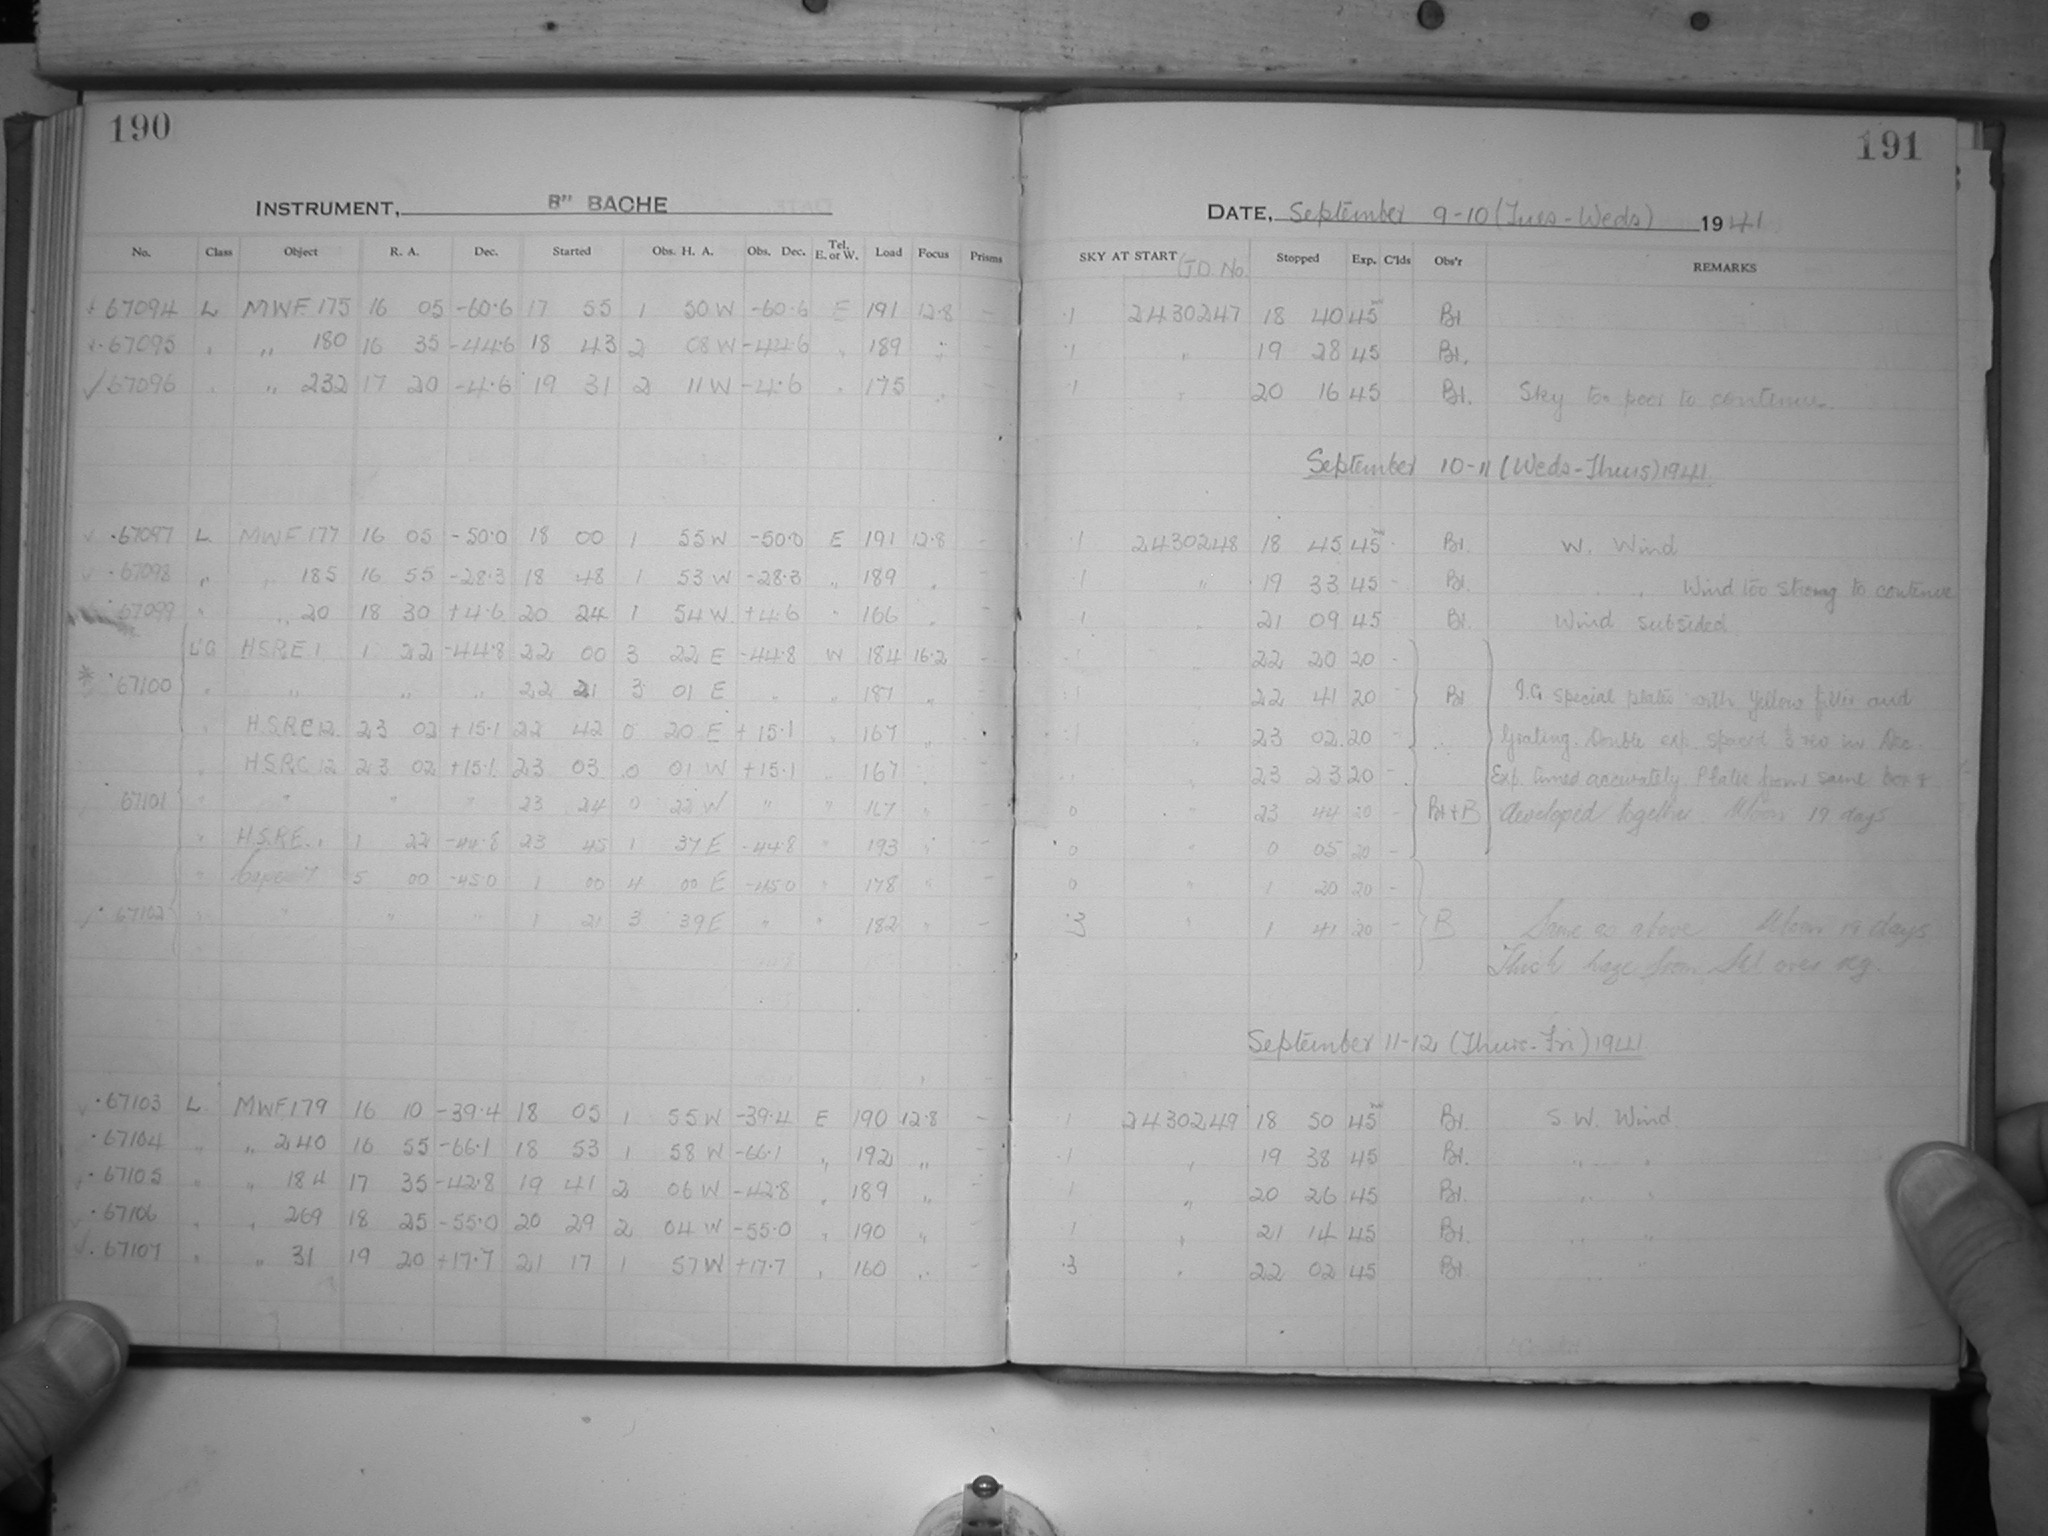 190
INSTRUMENT, 8" BACHE
No. Class Object R. A. Dec. Started Obs. H. A. Obs. Dec. Tel. E. or W. Load Focus Prisms
67094 L MWF 175 16 05 -60.6 17 55 1 50 W -60.6 E 191 12.8 -
67095 " " 180 16 35 -44.6 18 43 2 08 W -44.6 " 189 " -
67096 " " 232 17 20 -4.6 19 31 2 11 W -4.6 " 175 " -
67097 L MWF 177 16 05 -50.0 18 00 1 55 W -50.0 E 191 12.8 -
67098 " " 185 16 55 -28.3 18 48 1 53 W -28.3 " 189 " -
67099 " " 20 18 30 +4.6 20 24 1 54 W +4.6 " 166 " -
HSRE 1 1 22 -44.8 22 00 3 22 E -44.8 W 184 16.2 -
* 67100 " " " " 22 21 3 01 E " " 187 " -
" HSRE 12 23 02 +15.1 22 42 0 20 E +15.1 " 167 " -
" HSRC 12 23 02 +15.1 23 03 0 01 W +15.1 " 167 " -
67101 " " " " 23 24 0 22 W " " 167 " -
" HSRE 1 1 22 -44.8 23 45 1 37 E -44.8 " 193 " -
" 5 00 -45.0 1 00 4 00 E -45.0 " 178 " -
67102 " " " " 1 21 3 39 E " " 182 " -
67103 L MWF 179 16 10 -39.4 18 05 1 55 W -39.4 E 190 12.8 -
67104 " " 240 16 55 -66.1 18 53 1 58 W -66.1 " 192 " -
67105 " " 184 17 35 -42.8 19 41 2 06 W -42.8 " 189 " -
67106 " " 269 18 25 -55.0 20 29 2 04 W -55.0 " 190 " -
67107 " " 31 19 20 +17.7 21 17 1 57 W +17.7 " 160 " -
191
DATE, September 9-10 (Tues-Weds) 1941
SKY AT START (J.D. No. Stopped Exp. C'lds Obs'r REMARKS
.1 2430247 18 40 45 Bt.
.1 " 19 28 45 Bt.
.1 " 20 16 45 Bt. Sky too poor to continue.
September 10-11 (Weds-Thurs) 1941.
.1 2430248 18 45 45 - Bt. W. Wind
.1 " 19 33 45 - Bt. " " Wind too strong to continue
.1 " 21 09 45 Bt. Wind subsided
.1 " 22 20 20 -
.1 " 22 41 20 - Bt I.G special plates with Yellow filter and
.1 " 23 02 20 - Grating. Double exp. spaced in Dec.
.1 " 23 23 20 - Exp. timed accurately. Plates from same box &
0 " 23 44 20 - Bt + B developed together Moon 19 days
0 " 0 05 20 -
0 " 1 20 20 -
.3 " 1 41 20 - B Same as above Moon 19 days
Thick haze from SW over reg.
September 11-12 (Thurs-Fri) 1941
.1 2430249 18 50 45 Bt. S W. Wind
.1 " 19 38 45 Bt. " "
.1 " 20 26 45 Bt. " "
.1 " 21 14 45 Bt. " "
.3 " 22 02 45 Bt. " "